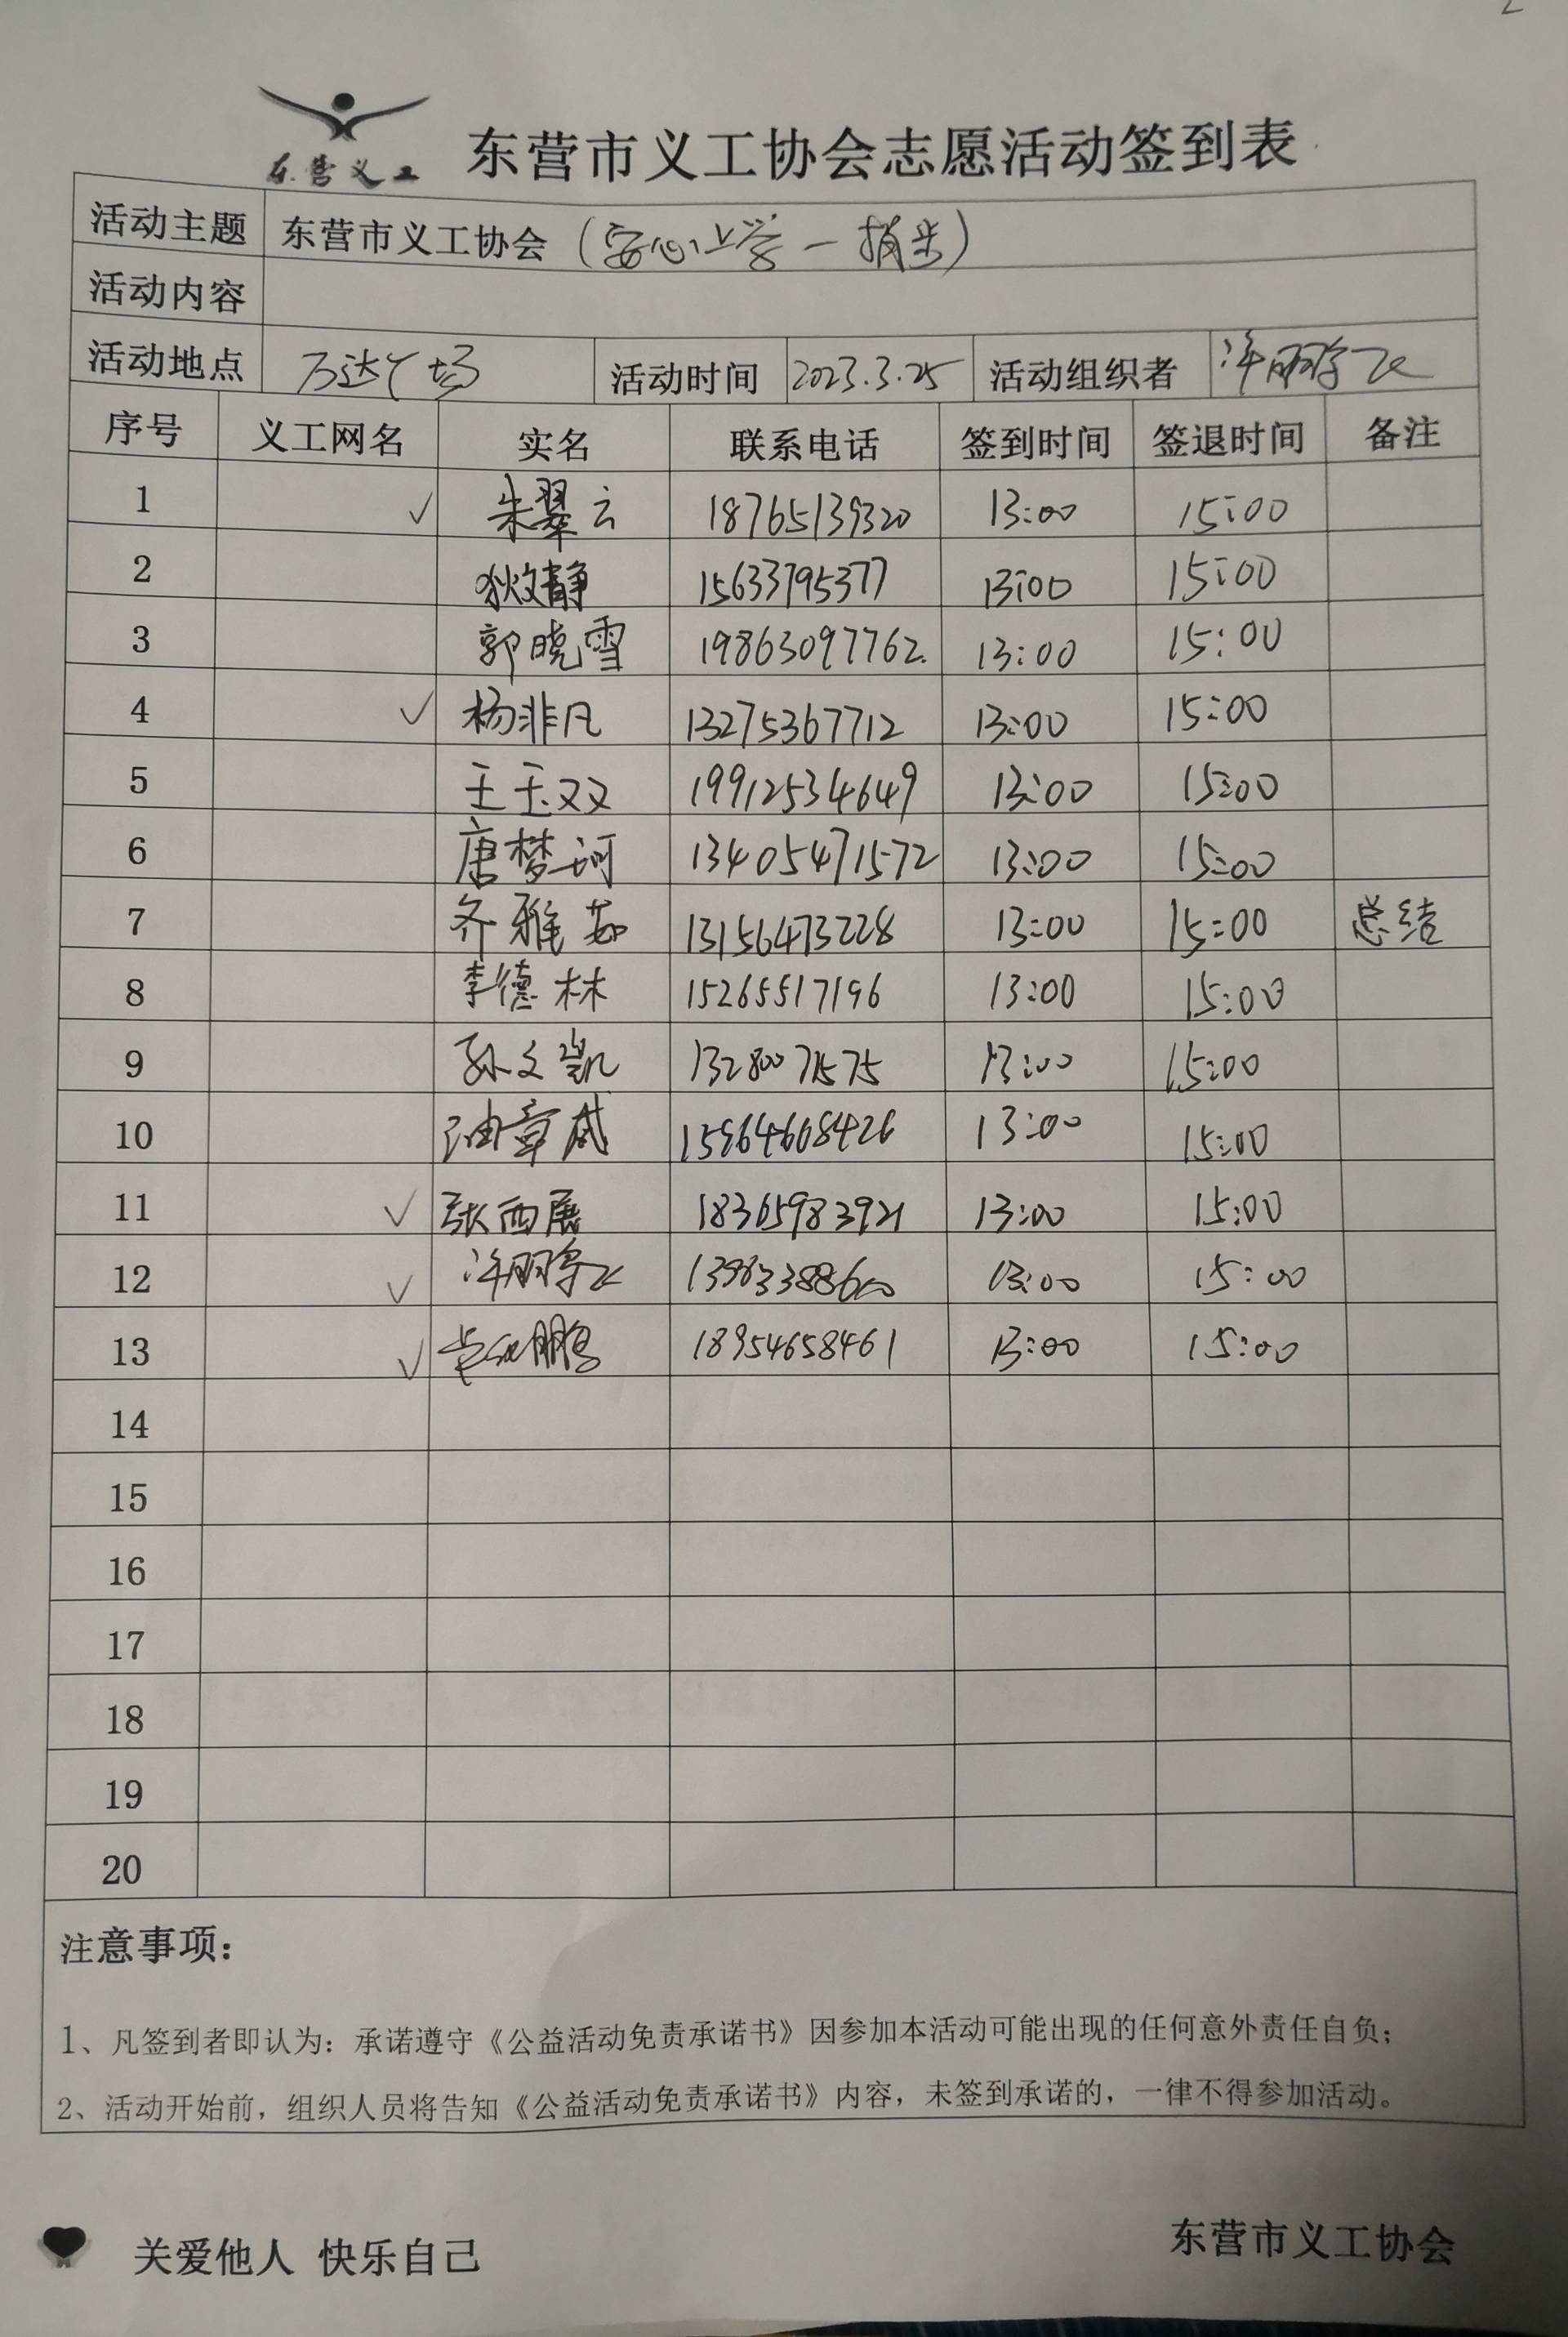 东营义工
东营市义工协会志愿活动签到表
活动主题 东营市义工协会（安心上学一捐步）
活动内容
活动地点 万达广场 活动时间 2023.3.25 活动组织者
序号 义工网名 实名 联系电话 签到时间 签退时间 备注
1 ✓ 朱翠云 18765139320 13:00 15:00
2 狄文静 15633795377 13:00 15:00
3 郭晓雪 19863097762 13:00 15:00
4 ✓ 杨非凡 13275367712 13:00 15:00
5 王玉双 19912534649 13:00 15:00
6 唐梦珂 13405471572 13:00 15:00
7 齐雅茹 13156473228 13:00 15:00 总结
8 李德林 15265517196 13:00 15:00
9 孙文凯 13280071575 13:00 15:00
10 15964608426 13:00 15:00
11 ✓ 张西展 18365983921 13:00 15:00
12 ✓ 13:00 15:00
13 ✓ 18954658461 13:00 15:00
14
15
16
17
18
19
20
注意事项：
1、凡签到者即认为：承诺遵守《公益活动免责承诺书》因参加本活动可能出现的任何意外责任自负；
2、活动开始前，组织人员将告知《公益活动免责承诺书》内容，未签到承诺的，一律不得参加活动。
关爱他人 快乐自己 东营市义工协会